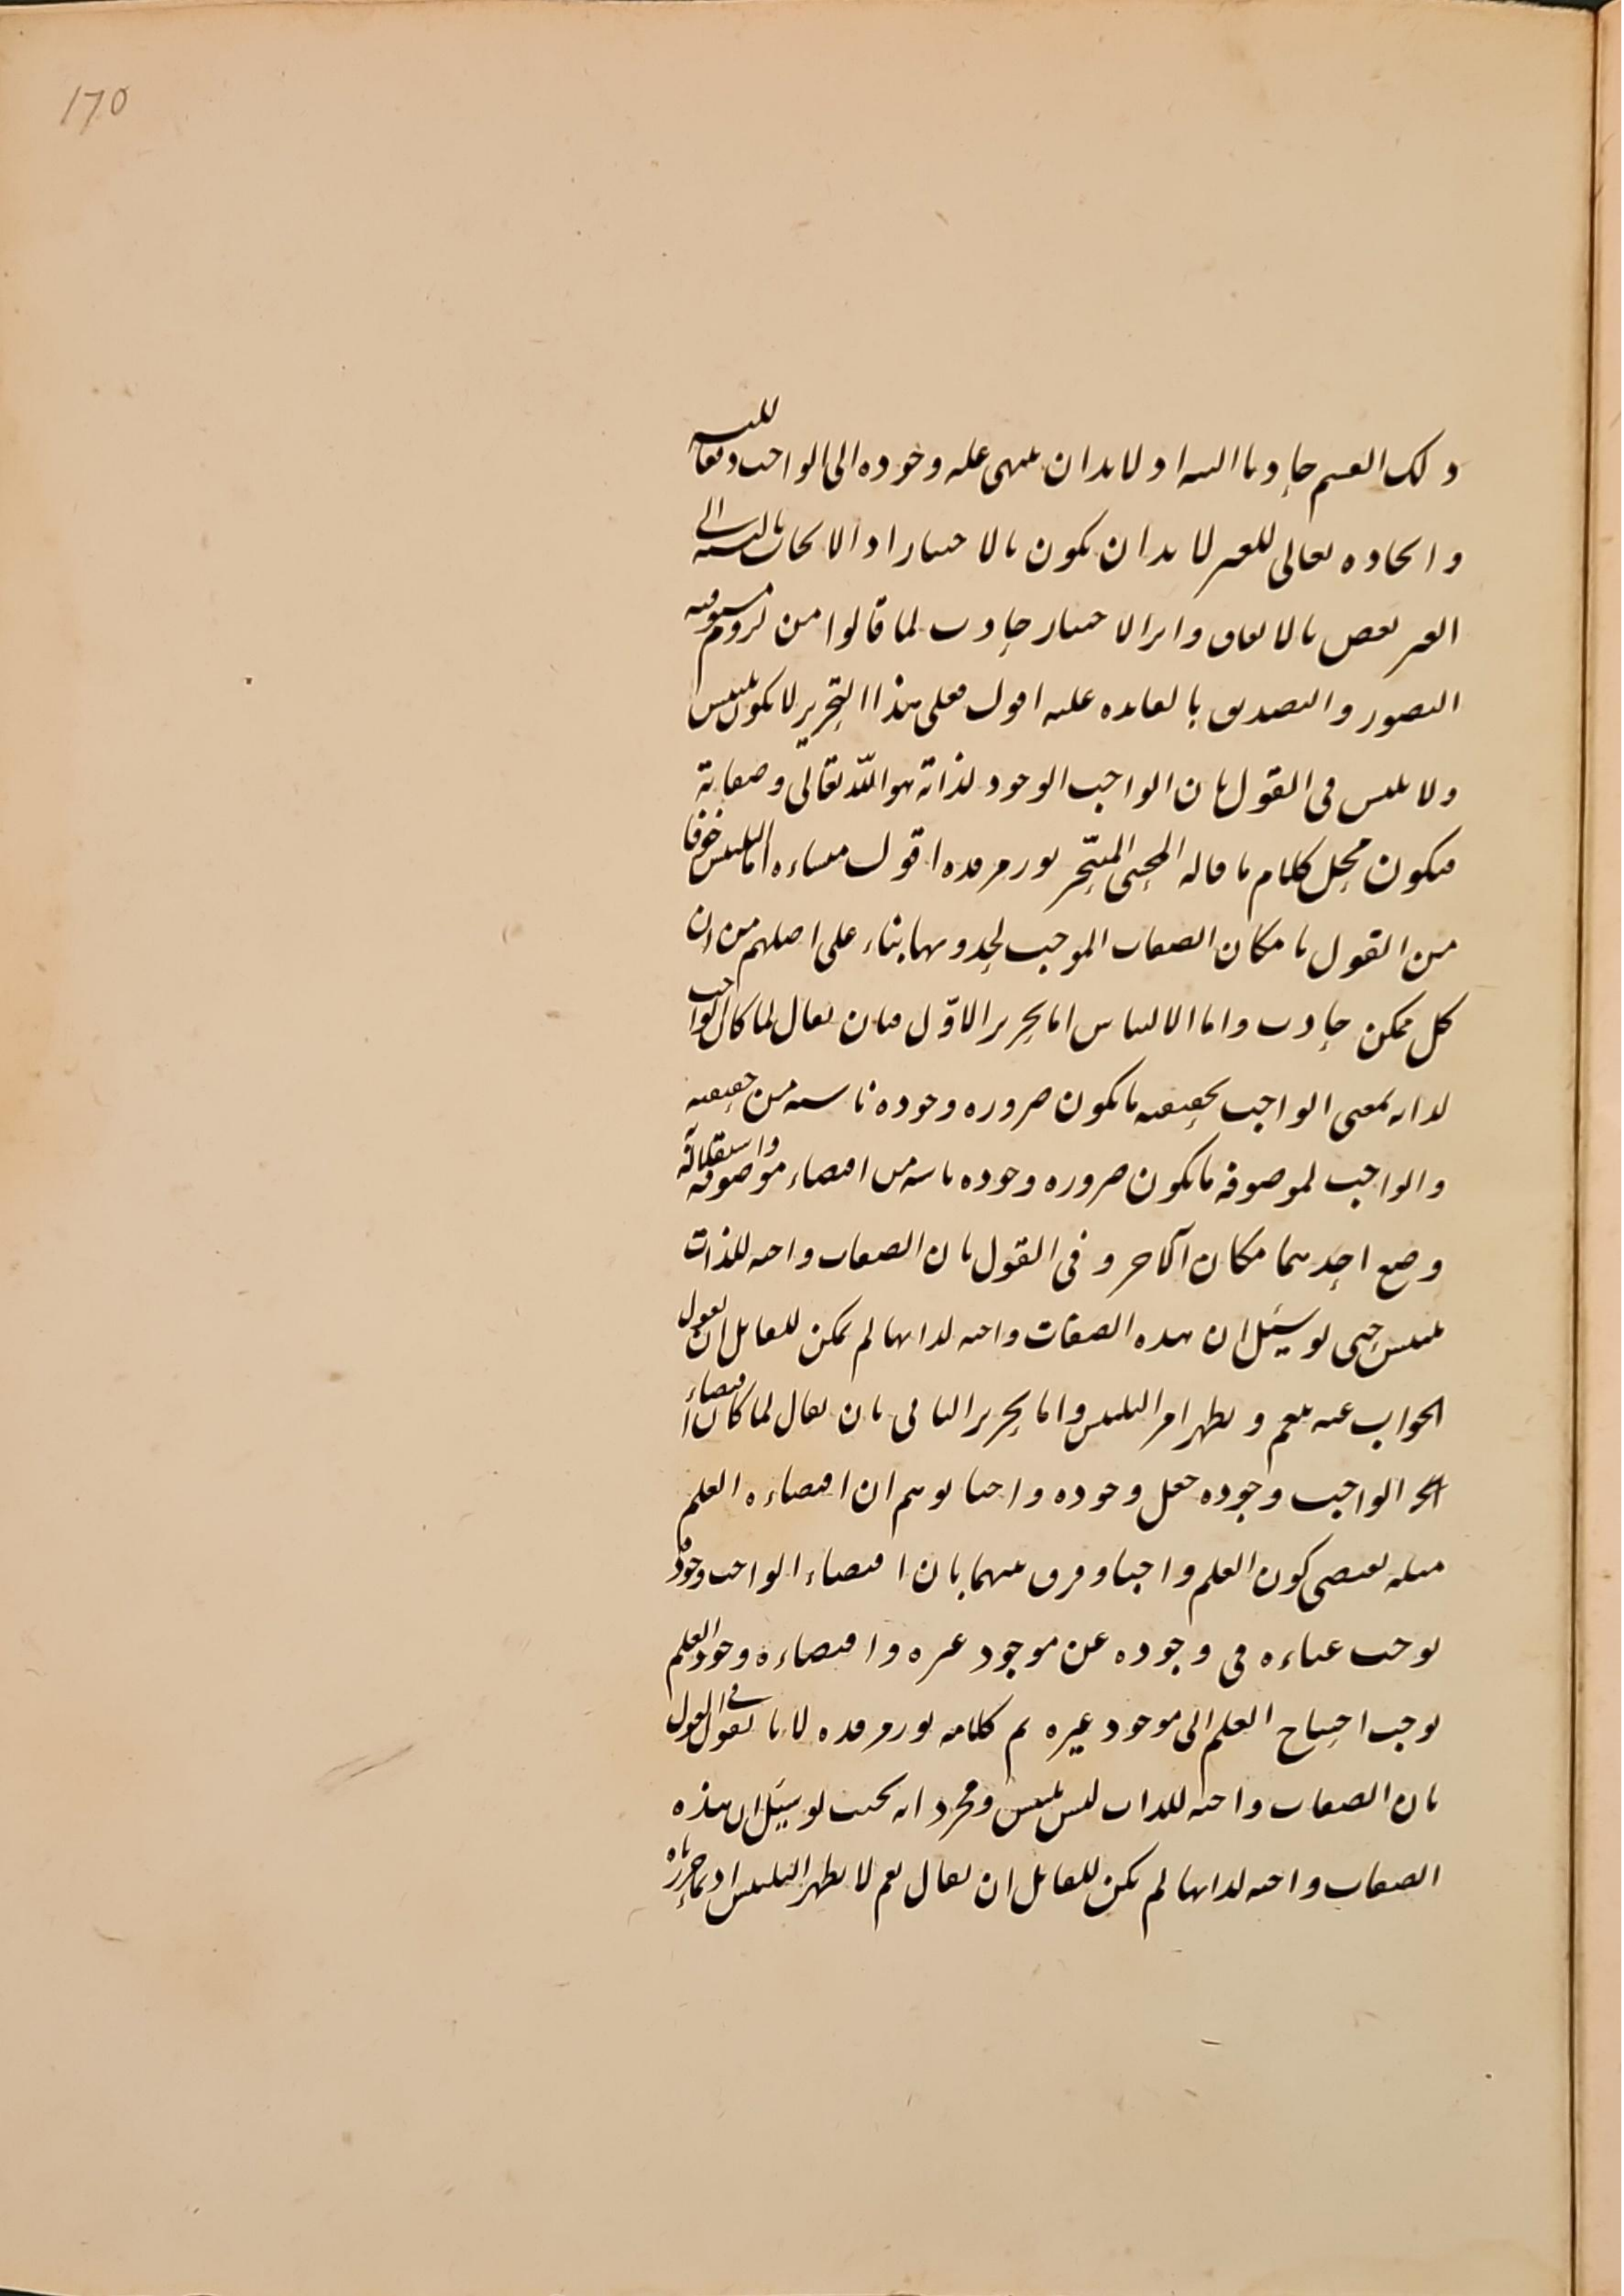 170
ذلك القسم حادثا البتة اذ لا بد ان ينتهي علة وجوده الى الواجب دفعا للتسلسل
وايجاده تعالى للغير لا بد ان يكون بالاختيار اذ الايجاب بالنسبة الى
الغير نقص بالاتفاق واثر الاختيار حادث لما قالوا من لزوم مسبوقيته
التصور والتصديق بالفائدة عليه اقول فعلى هذا التحرير لا يكون تلبيس
ولا يلبس في القول بان الواجب الوجود لذاته هو الله تعالى وصفاته
فيكون محل كلام ما قاله المحشي المتبحر نور مرقده اقول منشاءه اما التلبيس خوفا
من القول بامكان الصفات الموجب لحدوثها بناء على اصلهم من ان
كل ممكن حادث واما الالتباس اما تحرير الاول فبان يقال لما كان الواجب
لذاته بمعنى الواجب لحقيقته ما يكون ضرورة وجوده ناشئة من حقيقته
والواجب لموصوفه ما يكون ضرورة وجوده ناشئة من اقتضاء موصوفه واستقلاله
وضع احدهما مكان الآخر وفي القول بان الصفات واجبة للذات
تلبيس حتى لو سئل ان هذه الصفات واجبة لذاتها لم يمكن للقائل ان يقول
الجواب عنه بنعم ويظهر امر التلبيس واما تحرير الثاني بان يقال لما كان اقتضاء
الواجب وجوده جعل وجوده واجبا توهم ان اقتضاءه العلم
مثله يقتضي كون العلم واجبا وفرق بينهما بان اقتضاء الواجب وجوده
يوجب غناءه في وجوده عن موجود غيره واقتضاءه وجود العلم
يوجب احتياج العلم الى موجود غيره تم كلامه نور مرقده لانا نقول في القول
بان الصفات واجبة للذات ليس تلبيس ومجرد انه بحيث لو سئل ان هذه
الصفات واجبة لذاتها لم يكن للقائل ان يقال نعم لا يظهر التلبيس اذ بما حررناه